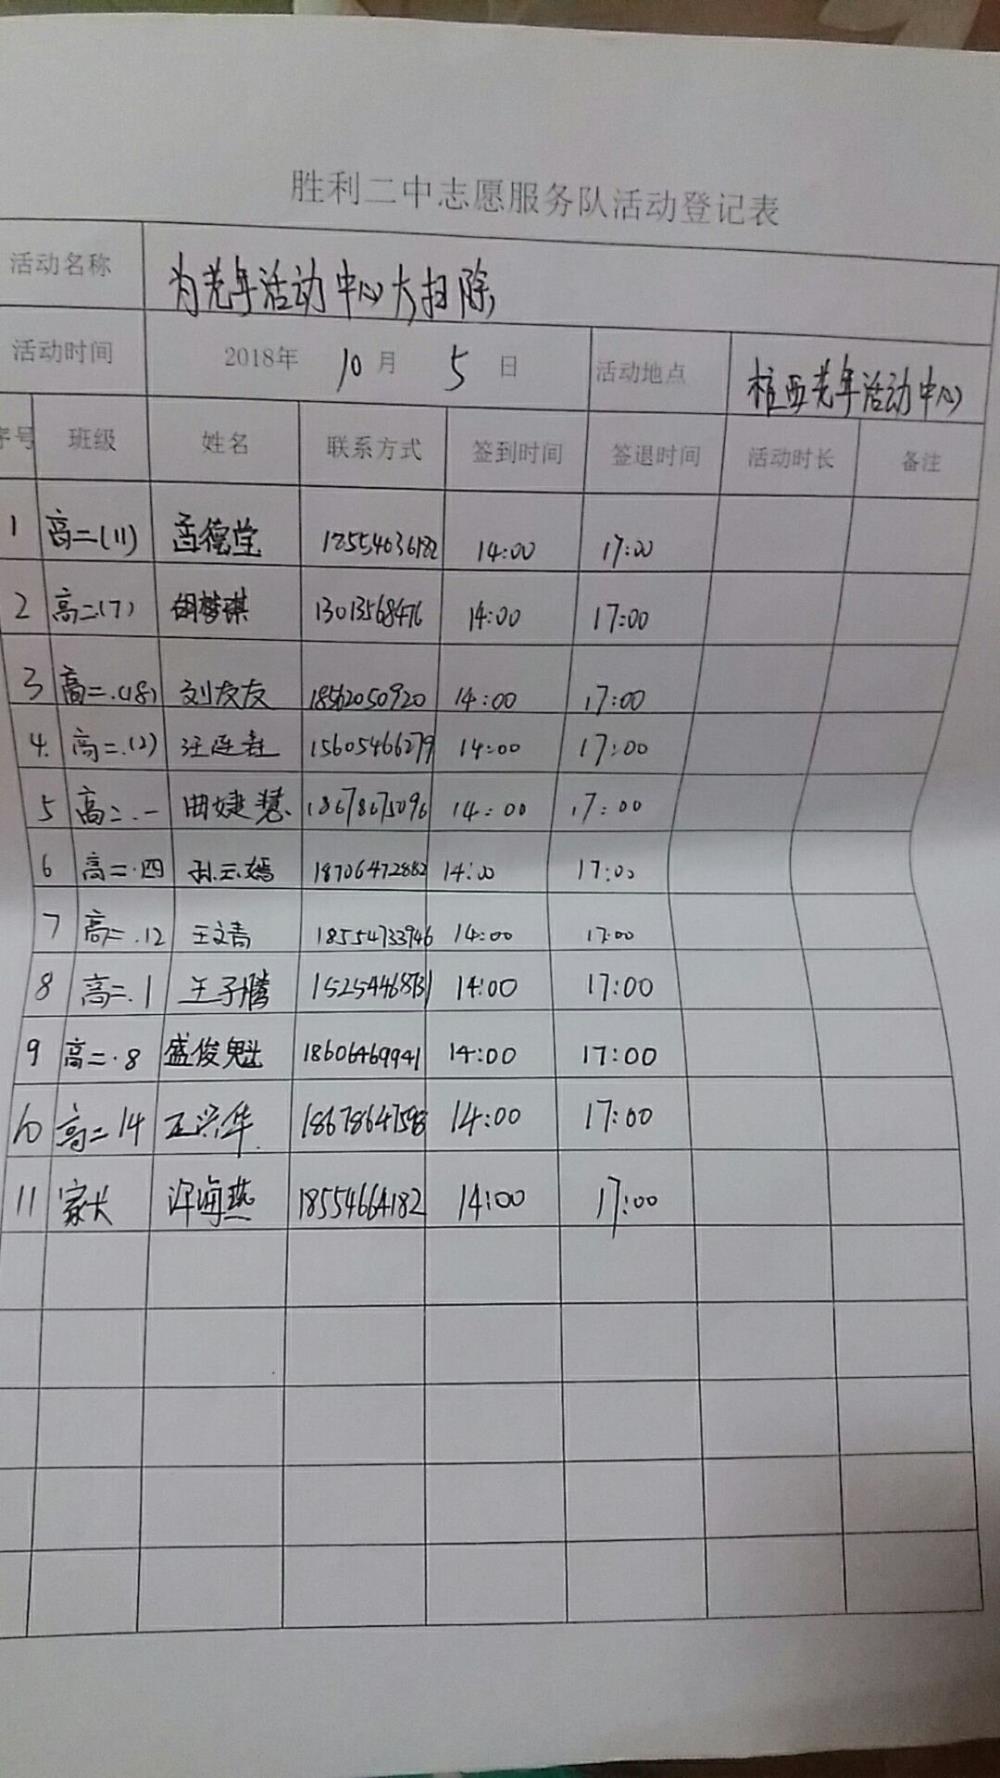 胜利二中志愿服务队活动登记表
活动名称 为老年活动中心大扫除
活动时间 2018年 10 月 5 日 活动地点 桩西老年活动中心
序号 班级 姓名 联系方式 签到时间 签退时间 活动时长 备注
1 高二(11) 孟德堂 14:00 17:00
2 高二(7) 胡梦琪 13013568476 14:00 17:00
3 高二.(18) 刘友友 18562050920 14:00 17:00
4. 高二.(2) 15605466279 14:00 17:00
5 高二.一 曲婕慧 18678675096 14:00 17:00
6 高二.四 孙云嫣 18706472882 14:00 17:00
7 高二.12 王文青 18554733946 14:00 17:00
8 高二.1 王子腾 14:00 17:00
9 高二.8 盛俊魁 18606469941 14:00 17:00
10 高二14 14:00 17:00
11 家长 许海燕 18554664182 14:00 17:00